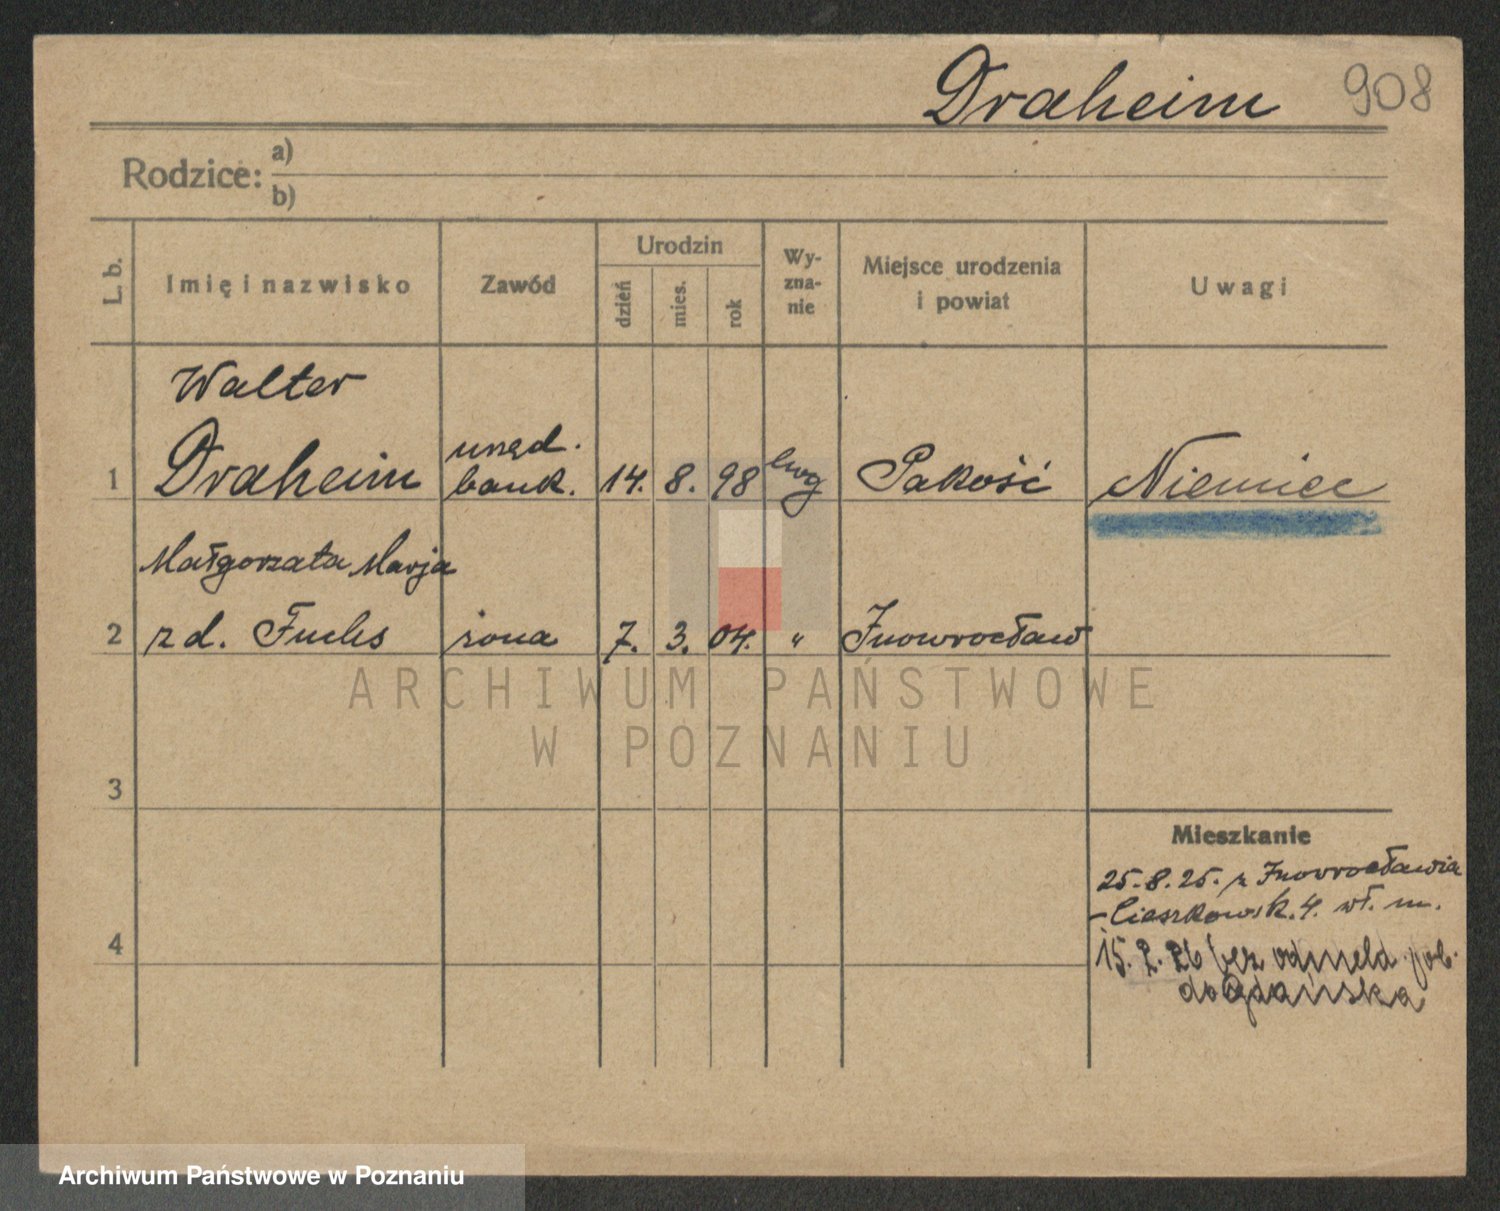 Draheim 908
Rodzice: a)
b)
L. b.
Imię i nazwisko
Zawód
Urodzin
dzień
mies.
rok
Wy-
zna-
nie
Miejsce urodzenia
i powiat
Uwagi
Walter
1 Draheim
urzęd.
bank.
14. 8. 98 ewg Pakość Niemiec
Małgorzata Marja
2 z d. Fuchs żona 7. 3. 04. " Inowrocław
ARCHIWUM PAŃSTWOWE
W POZNANIU
3
Mieszkanie
25.8.25. z Inowrocławia
Cieszkowsk. 4. wł. m.
4
15. 2. 26 bez odmeld.
do Gdańska
Archiwum Państwowe w Poznaniu